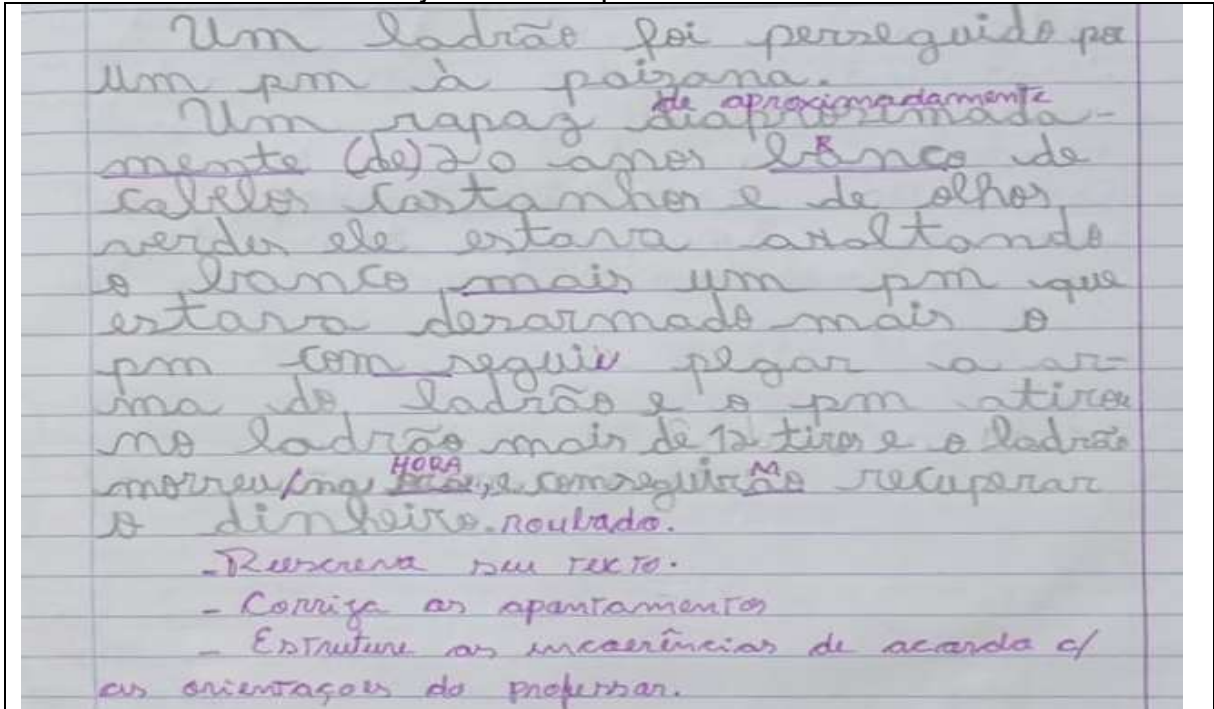 Um ladrão foi perseguido por
um pm à paisana.
de aproximadamente
Um rapaz diaproximada-
mente (de) 20 anos branco de
R
cabelos castanhos e de olhos
verdes ele estava asaltando
o banco mais um pm que
estava desarmado mais o
pm com seguiu pegar a ar-
ma do ladrão e o pm atirou
no ladrão mais de 12 tiros e o ladrão
HORA
M
morreu/na, e conseguirão recuperar
o dinheiro. roubado.
- Reescreva seu texto.
- Corrija os apontamentos
- Estruture as incoerências de acordo c/
as orientações do professor.